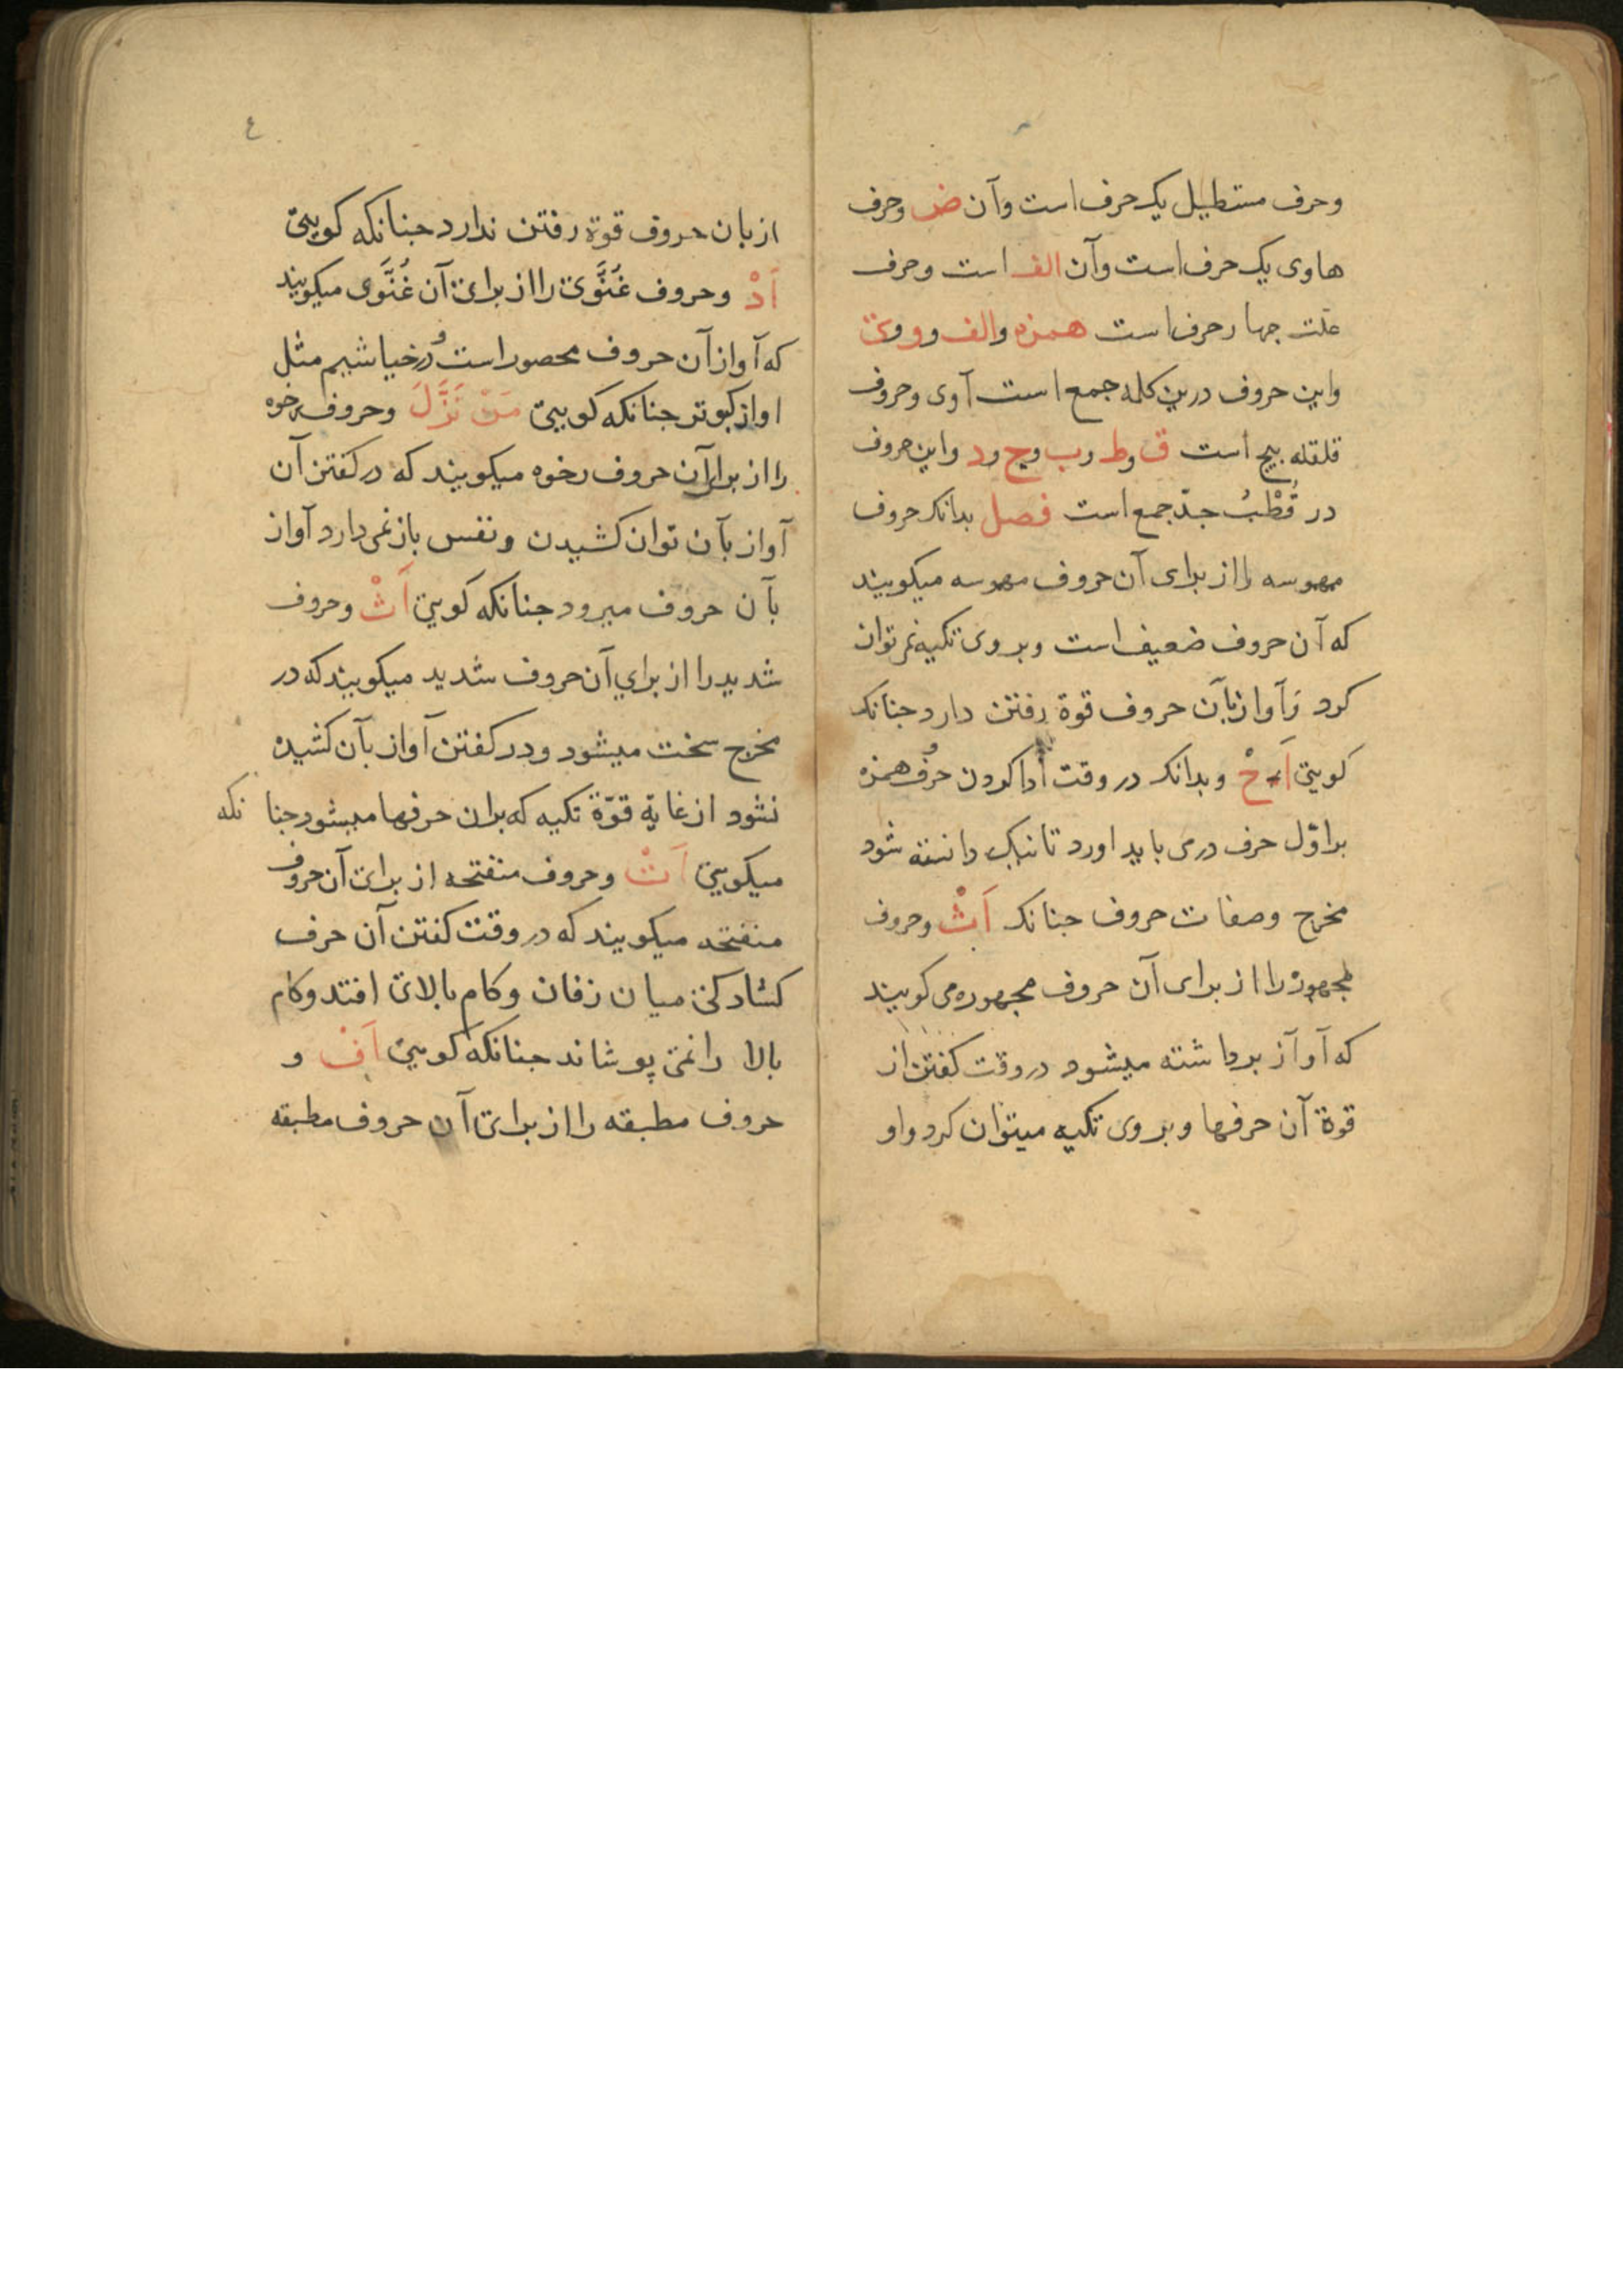 وحرف مستطیل یک حرف است وآن ض وحرف
هاوی یک حرف است وآن الف است وحرف
علت جهار حرف است همزه والف وو وی
واین حروف درین کلمه جمع است آوی وحروف
قلقله پنج است ق وط وب وج ود واین حروف
در قُطْبُ جدّ جمع است فصل بدانک حروف
مهموسه را از برای آن حروف مهموسه میکویند
که آن حروف ضعیف است وبروی تکیه نمی توان
کرد وآواز بآن حروف قوة رفتن دارد جنانک
کویی اَحْ وبدانک در وقت ادا کردن حرف همزه
بر اوّل حرف در می باید اورد تا نیک دانسته شود
مخرج وصفات حروف جنانک اَثْ وحروف
مجهوره را از برای آن حروف مجهوره می کویند
که آواز برداشته میشود در وقت کفتن از
قوة آن حرفها وبروی تکیه میتوان کرد واو
٤
از بان حروف قوة رفتن ندارد جنانکه کویی
اَدْ وحروف غُنَّوی را از برای آن غُنَّوی میکویند
که آواز آن حروف محصور است در خیاشیم مثل
اواز کبوتر جنانکه کویی مَنْ نَزَّلَ وحروف رخوه
را از برای آن حروف رخوه میکویند که در کفتن آن
آواز بآن توان کشیدن ونفس باز نمی دارد آواز
بآن حروف میرود جنانکه کویی اَثْ وحروف
شدید را از برای آن حروف شدید میکویند که در
مخرج سخت میشود ودر کفتن آواز بآن کشیدن
نشود از غایة قوّة تکیه که بران حرفها میشود جنا نکه
میکویی اَتْ وحروف منفتحه از برای آن حروف
منفتحه میکویند که در وقت کفتن آن حرف
کشادکی میان زفان وکام بالای افتد وکام
بالا را نمی پوشاند جنانکه کویی اَفْ و
حروف مطبقه را از برای آن حروف مطبقه